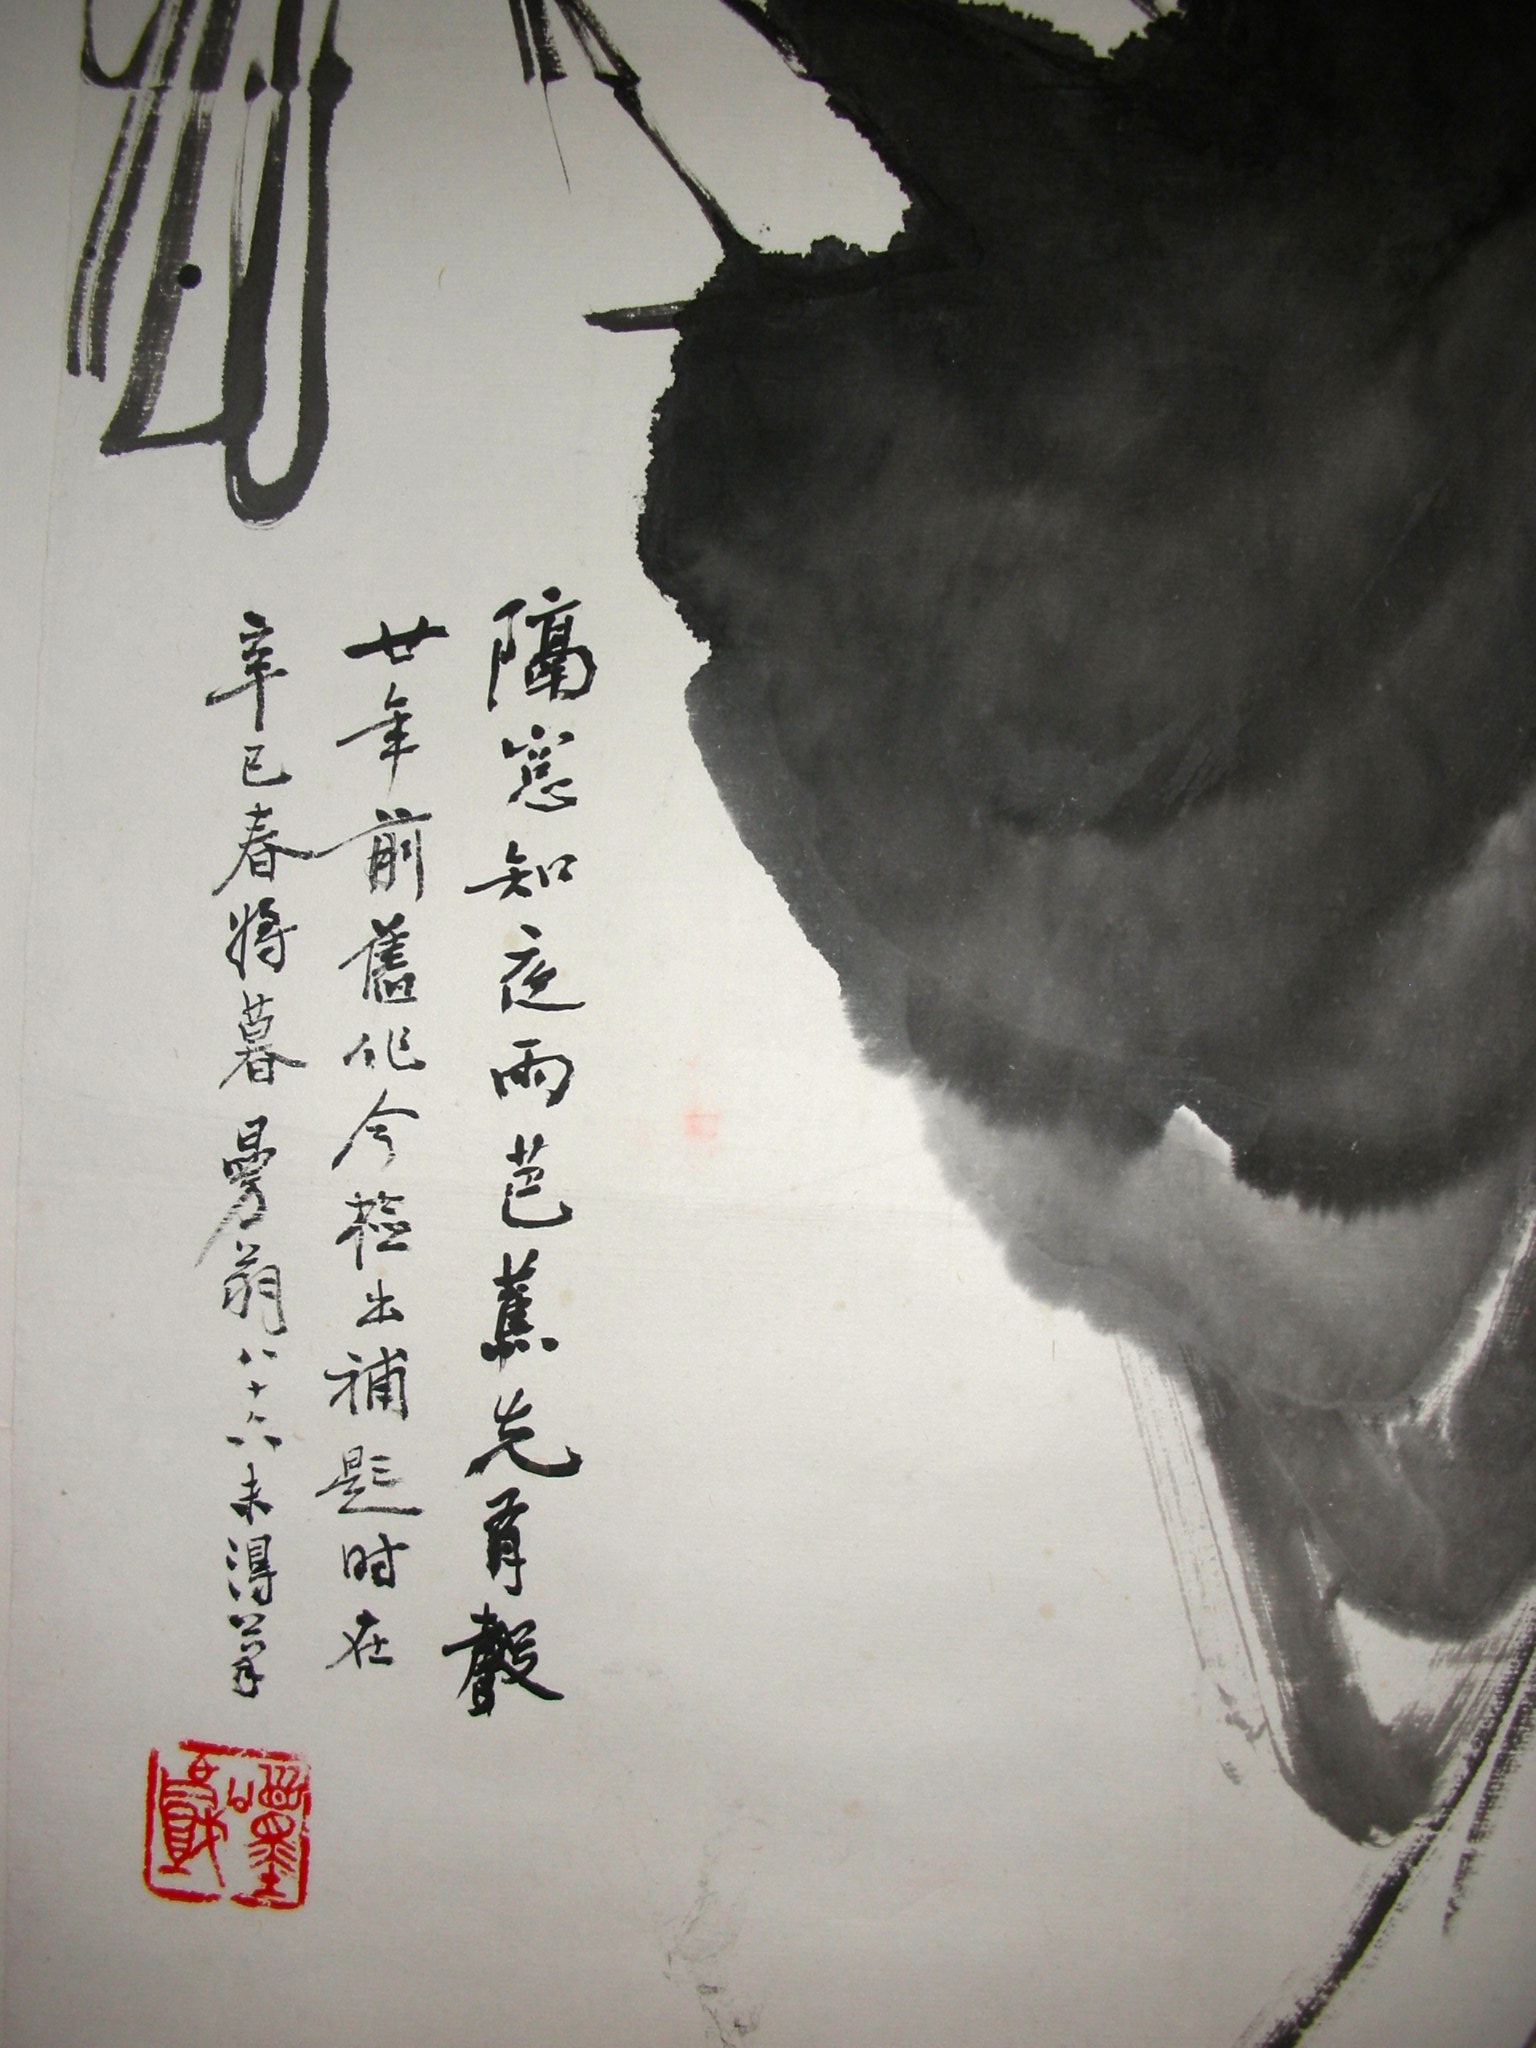 隔窓知夜雨芭蕉先有聲
廿年前舊作今檢出補題時在
辛巳春將暮曼翁八十六未得筆